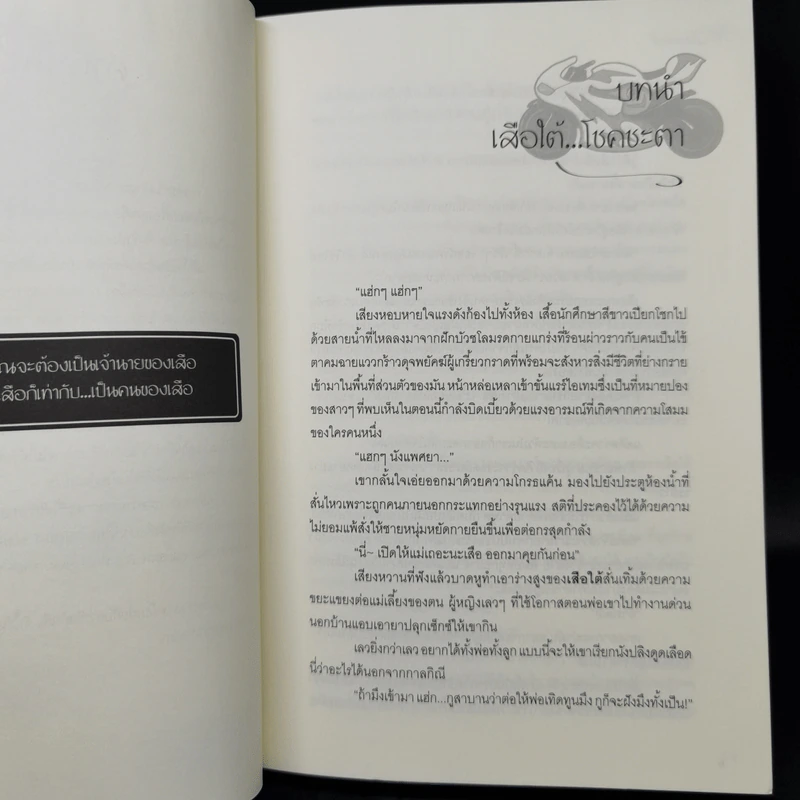 ณจะต้องเป็นเจ้านายของเสือ
สือก็เท่ากับ...เป็นคนของเสือ
บทนำ
เสือใต้...โชคชะตา
"แฮ่กๆ แฮ่กๆ"
เสียงหอบหายใจแรงดังก้องไปทั้งห้อง เสื้อนักศึกษาสีขาวเปียกโชกไป
ด้วยสายน้ำที่ไหลลงมาจากฝักบัวชโลมรดกายแกร่งที่ร้อนผ่าวราวกับคนเป็นไข้
ตาคมฉายแววกร้าวดุจพยัคฆ์ผู้เกรี้ยวกราดที่พร้อมจะสังหารสิ่งมีชีวิตที่ย่างกราย
เข้ามาในพื้นที่ส่วนตัวของมัน หน้าหล่อเหลาเข้าขั้นแรร์ไอเทมซึ่งเป็นที่หมายปอง
ของสาวๆ ที่พบเห็นในตอนนี้กำลังบิดเบี้ยวด้วยแรงอารมณ์ที่เกิดจากความโสมม
ของใครคนหนึ่ง
"แฮกๆ นังแพศยา..."
เขากลั้นใจเอ่ยออกมาด้วยความโกรธแค้น มองไปยังประตูห้องน้ำที่
สั่นไหวเพราะถูกคนภายนอกกระแทกอย่างรุนแรง สติที่ประคองไว้ได้ด้วยความ
ไม่ยอมแพ้สั่งให้ชายหนุ่มหยัดกายยืนขึ้นเพื่อต่อกรสุดกำลัง
"นี่~ เปิดให้แม่เถอะนะเสือ ออกมาคุยกันก่อน"
เสียงหวานที่ฟังแล้วบาดหูทำเอาร่างสูงของเสือใต้สั่นเทิ้มด้วยความ
ขยะแขยงต่อแม่เลี้ยงของตน ผู้หญิงเลวๆ ที่ใช้โอกาสตอนพ่อเขาไปทำงานด่วน
นอกบ้านแอบเอายาปลุกเซ็กซ์ให้เขากิน
เลวยิ่งกว่าเลว อยากได้ทั้งพ่อทั้งลูก แบบนี้จะให้เขาเรียกนังปลิงดูดเลือด
นี่ว่าอะไรได้นอกจากกาลกิณี
"ถ้ามึงเข้ามา แฮ่ก...กูสาบานว่าต่อให้พ่อเทิดทูนมึง กูก็จะฝังมึงทั้งเป็น!"